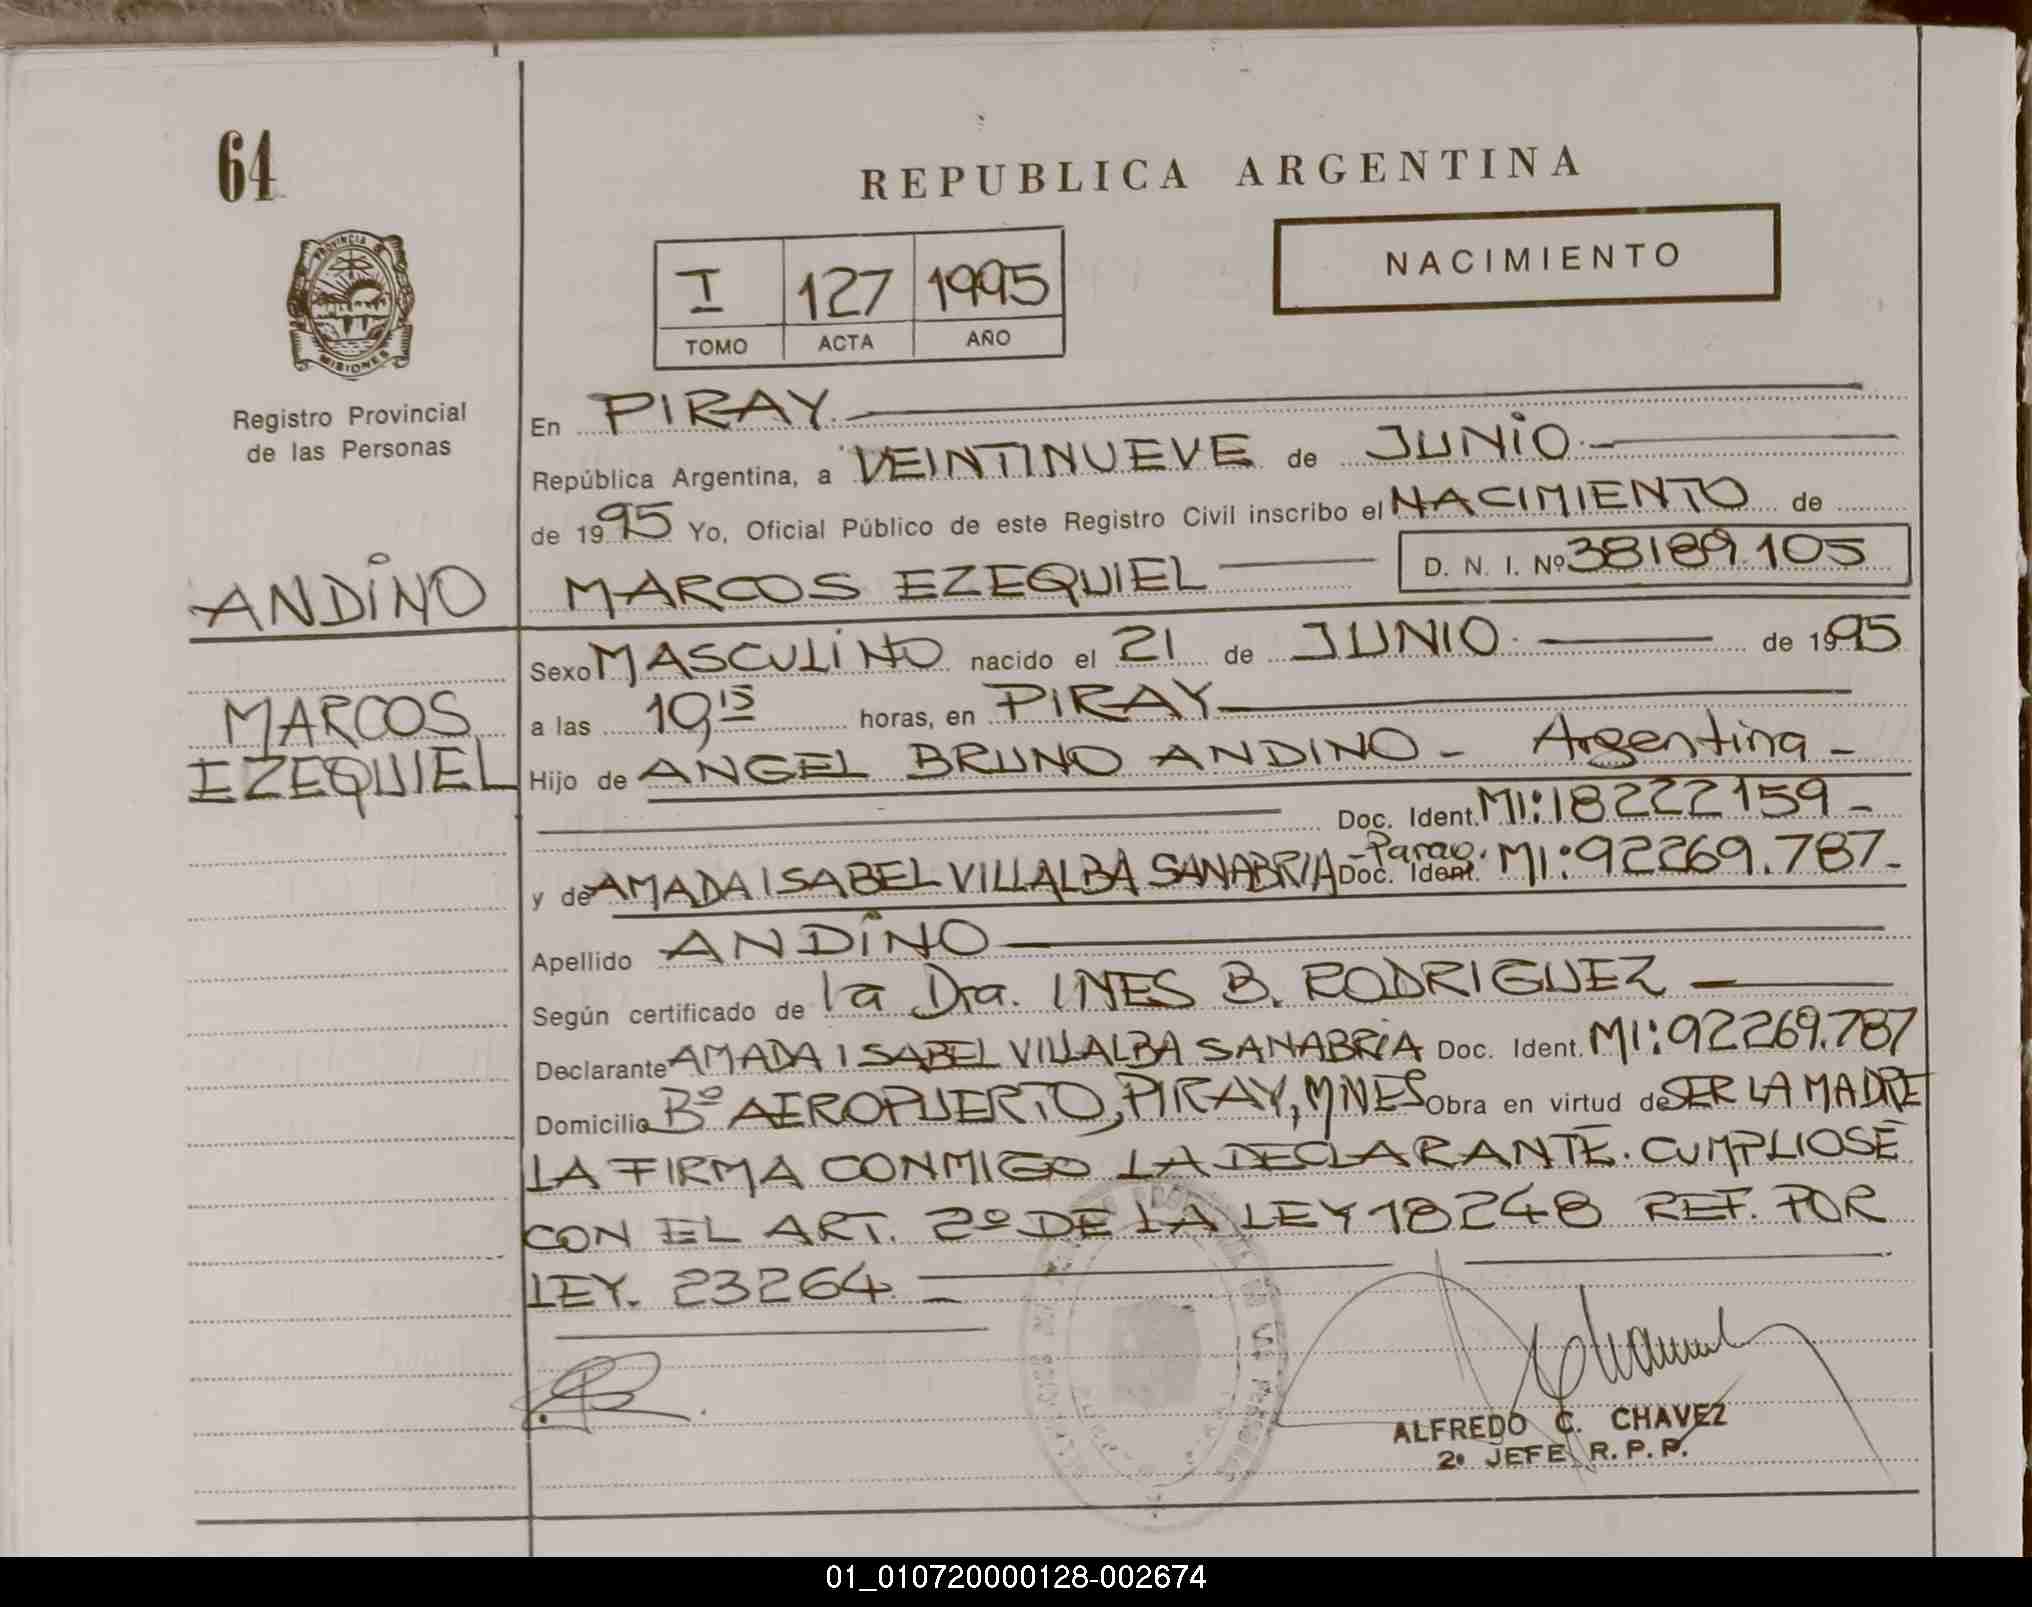 64
REPUBLICA ARGENTINA
PROVINCIA DE
MISIONES
NACIMIENTO
I 127 1995
TOMO ACTA AÑO
Registro Provincial
de las Personas
ANDINO
MARCOS
EZEQUIEL
En PIRAY
República Argentina, a VEINTINUEVE de JUNIO
de 1995 Yo, Oficial Público de este Registro Civil inscribo el NACIMIENTO de
MARCOS EZEQUIEL D. N. I. Nº 38189.105
Sexo MASCULINO nacido el 21 de JUNIO de 1995
a las 19,15 horas, en PIRAY
Hijo de ANGEL BRUNO ANDINO - Argentina -
Doc. Ident. MI: 18222159 -
y de AMADA ISABEL VILLALBA SANABRIA - Parag. Doc. Ident. MI: 92269.787 -
Apellido ANDINO
Según certificado de la Dra. INES B. RODRIGUEZ
Declarante AMADA ISABEL VILLALBA SANABRIA Doc. Ident. MI: 92269.787
Domicilio Bº AEROPUERTO, PIRAY, MNES Obra en virtud de SER LA MADRE
LA FIRMA CONMIGO LA DECLARANTE. CUMPLIOSE
CON EL ART. 2º DE LA LEY 18248 REF. POR
LEY. 23264.
ALFREDO C. CHAVEZ
2º JEFE R.P.P.
01_010720000128-002674